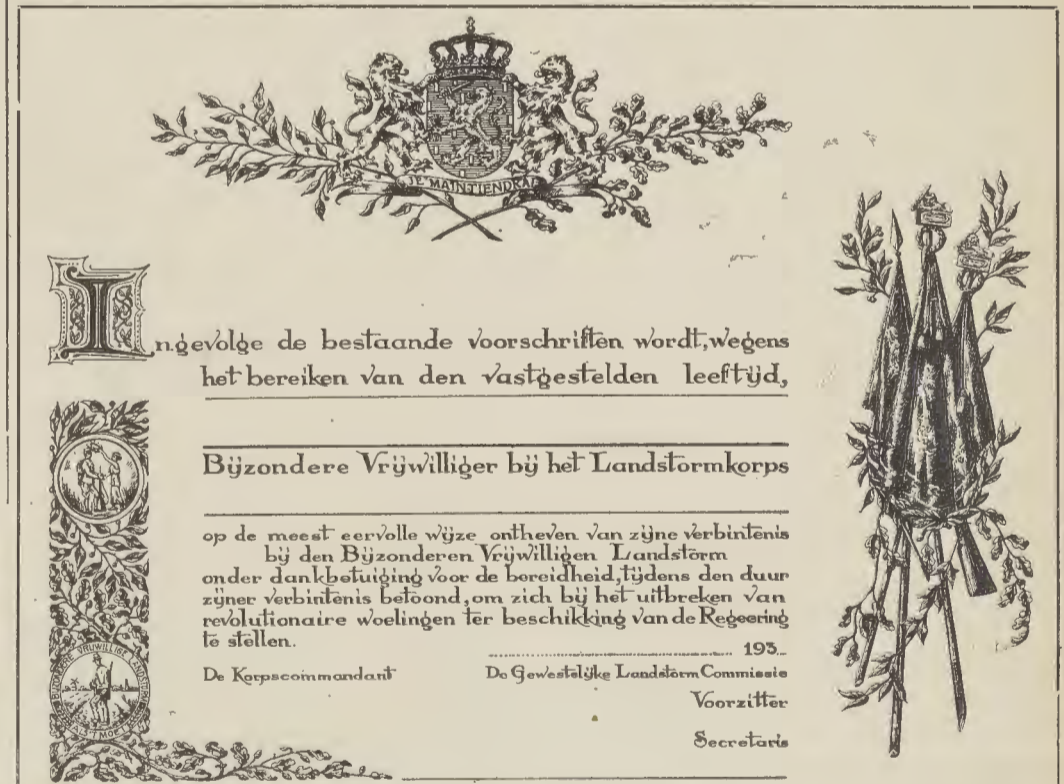 JE MAINTIENDRAI
In gevolge de bestaande voorschriften wordt, wegens
het bereiken van den vastgestelden leeftijd,
Bijzondere Vrijwilliger bij het Landstormkorps
op de meest eervolle wijze ontheven van zijne verbintenis
bij den Bijzonderen Vrijwilligen Landstorm
onder dankbetuiging voor de bereidheid, tijdens den duur
zijner verbintenis betoond, om zich bij het uitbreken van
revolutionaire woelingen ter beschikking van de Regeering
te stellen.
193_
De Korpscommandant
De Gewestelijke Landstorm Commissie
Voorzitter
Secretaris
BIJZONDERE VRIJWILLIGE LANDSTORM
ALS 'T MOET